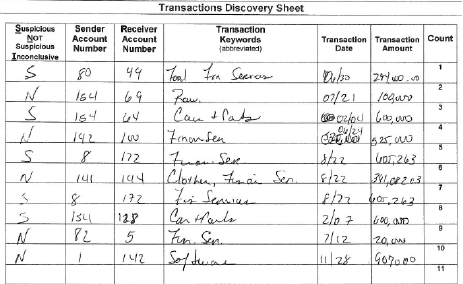 Transactions Discovery Sheet
Suspicious NOT Suspicious Inconclusive Sender Account Number Receiver Account Number Transaction Keywords (abbreviated) Transaction Date Transaction Amount Count
S 80 49 Food Fin Services 06/30 1
N 154 69 Raw 07/21 100,000 2
S 154 64 Car & Parts 02/04 600,000 3
N 142 100 Finan Sen 06/24 525,000 4
S 8 172 Finan. Sen 8/22 605,263 5
N 141 144 Clothes, Finan Sen. 8/22 6
S 8 172 Fin Services 8/22 605,263 7
S 154 128 Car & Parts 2/07 600,000 8
N 82 5 Fin. Sen. 7/12 20,000 9
N 1 142 Software 11/28 10
11